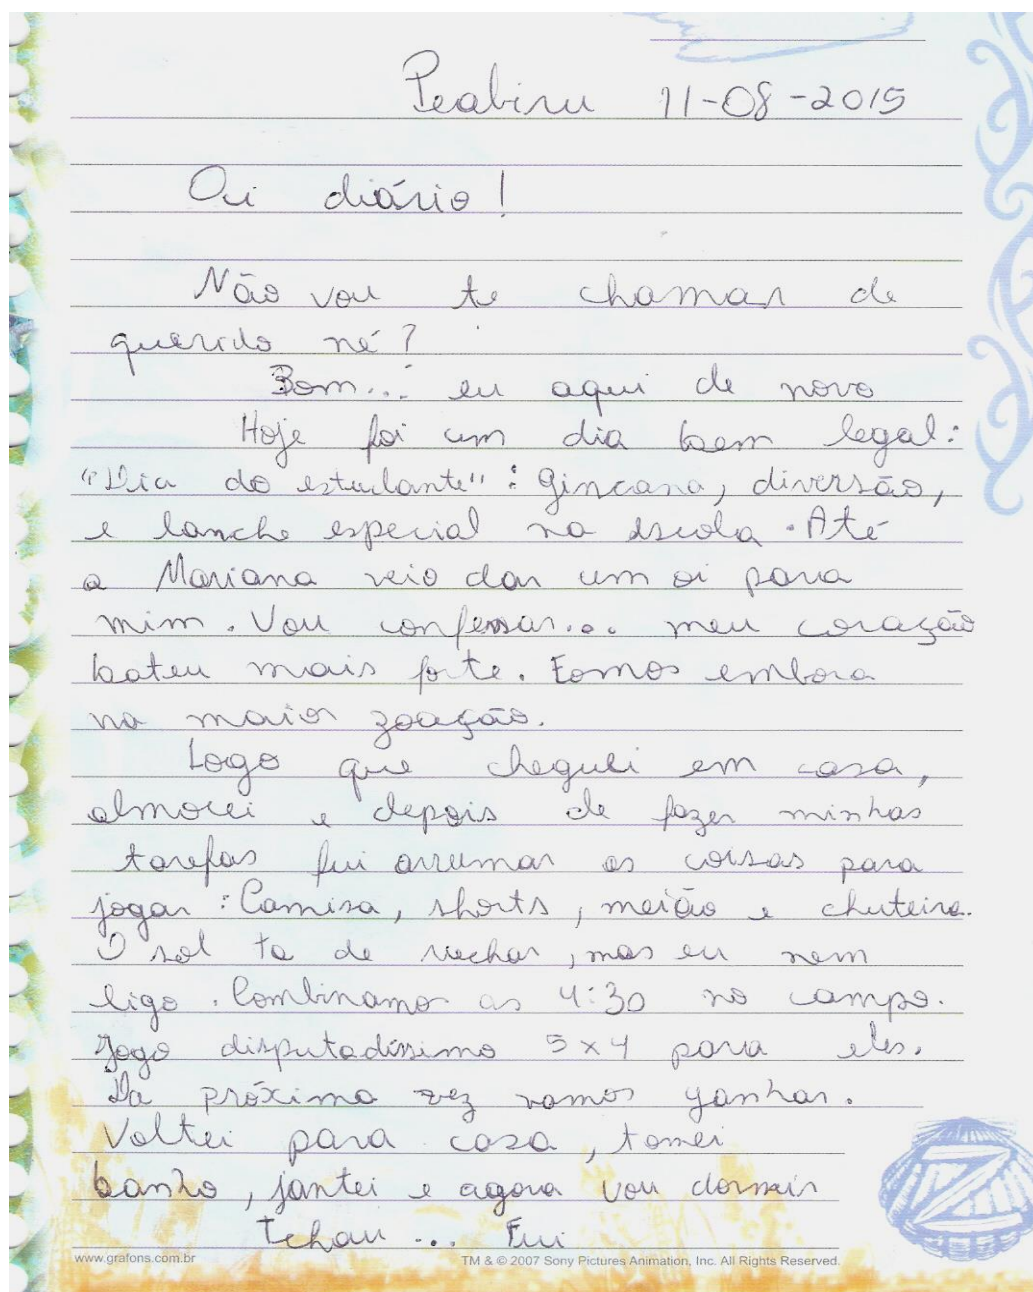 Peabiru 11-08-2015
Oi diário!
Não vou te chamar de
querido né?
Bom... eu aqui de novo
Hoje foi um dia bem legal:
"Dia do estudante": Gincana, diversão,
e lanche especial na escola. Até
a Mariana veio dar um oi para
mim. Vou confessar... meu coração
bateu mais forte. Fomos embora
na maior zoação.
Logo que cheguei em casa,
almocei e depois de fazer minhas
tarefas fui arrumar as coisas para
jogar: Camisa, shorts, meião e chuteira.
O sol ta de rachar, mas eu nem
ligo. Combinamos as 4:30 no campo.
Jogo disputadíssimo 5x4 para eles.
Da próxima vez vamos ganhar.
Voltei para casa, tomei
banho, jantei e agora vou dormir
Tchau... Fui
www.grafons.com.br TM & © 2007 Sony Pictures Animation, Inc. All Rights Reserved.